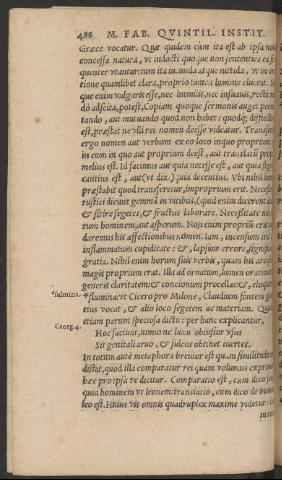 488 M. FAB. QVINTIL. INSTIT.
Græce vocatur. Quæ quidem cùm ita est ab ipsa nobis
concessa natura, vt indocti quoque non sentientes ea fre
quenter vtantur: tum ita iucunda atque nitida, vt in
tione quamlibet clara, proprio tamen lumine eluceat.
que enim vulgaris esse, nec humilis, nec insuauis, recte
dò adscita, potest. Copiam quoque sermonis auget
tando, aut mutuando quod non habet: quodq; difficil
est, præstat ne vlli rei nomen deesse videatur. Transfer
ergo nomen aut verbum ex eo loco in quo proprium
in eum in quo aut proprium deest, aut translatū pro
melius est. Id facimus aut quia necesse est, aut quia sign
cantius est, aut (vt dixi) quia decentius. Vbi nihil ho
præstabit quod transferetur, improprium erit. Necess
rustici dicunt gemmā in vitibus, (quid enim dicerent
& sitire segetes, & fructus laborare. Necessitate
rum hominem, aut asperum. Non enim propriū erat
deremus his affectionibus nomen. Iam, incensum
inflammatum cupiditate: & lapsum errore,
gratia. Nihil enim horum suis verbis, quàm his
magis proprium erat. Illa ad ornatum, lumen orationis
generis claritatem: & concionum procellas: & eloquen
*fulmina. *flumina: vt Cicero pro Milone, Clodium fontem glo
eius vocat, & alio loco segetem ac materiam.
etiam parum speciosa dictu: per hanc explicantur,
Georg. 4.
Hoc faciunt, nimio ne luxu obtusior vsus
Sit genitali aruo, & sulcos oblinet inertes.
In totum autē metaphora breuior est quàm similitudo
distat, quod illa comparatur rei quam volumus expri
hæc pro ipsa re dicitur. Comparatio est, cùm dico
quà hominem vt leonem: translatio, cùm dico de homi
leo est. Huius vis omnis quadruplex maxime videtur: